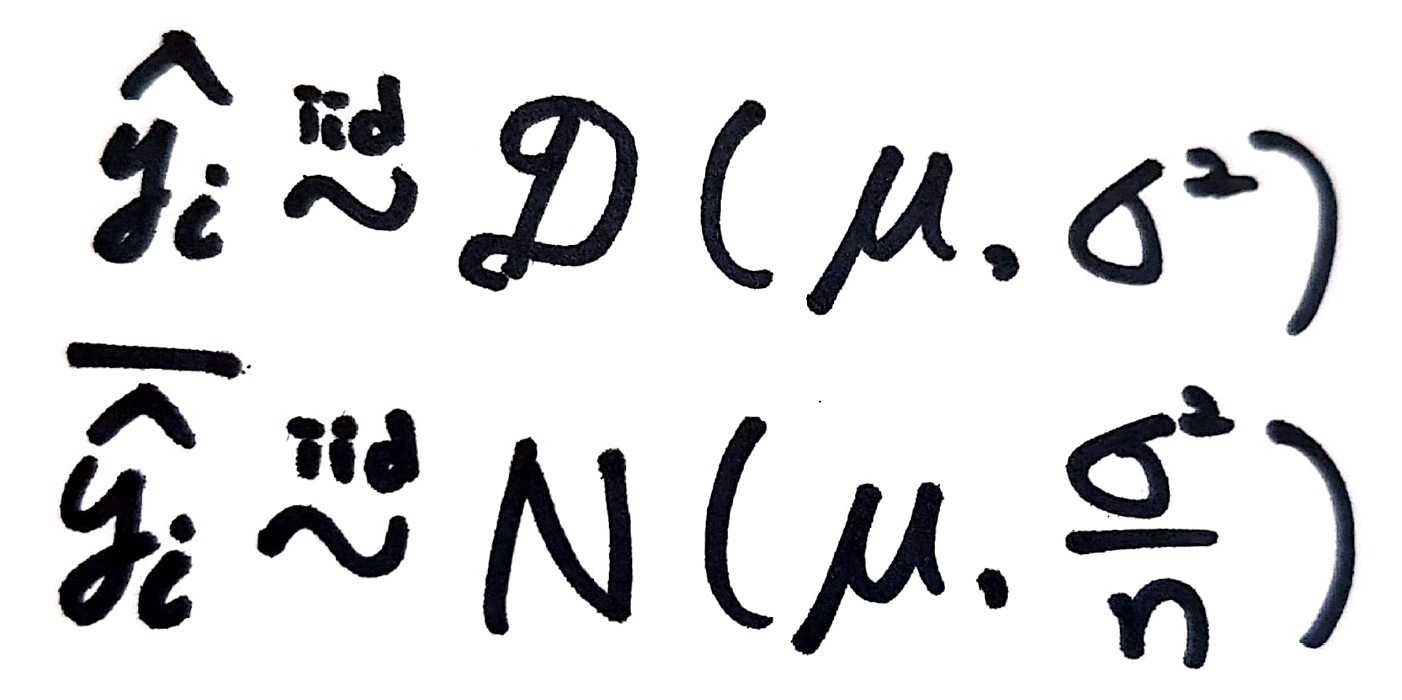 $\hat{y}_i \overset{\text{iid}}{\sim} \mathcal{D}(\mu, \sigma^2)$
$\overline{\hat{y}_i} \overset{\text{iid}}{\sim} N(\mu, \frac{\sigma^2}{n})$